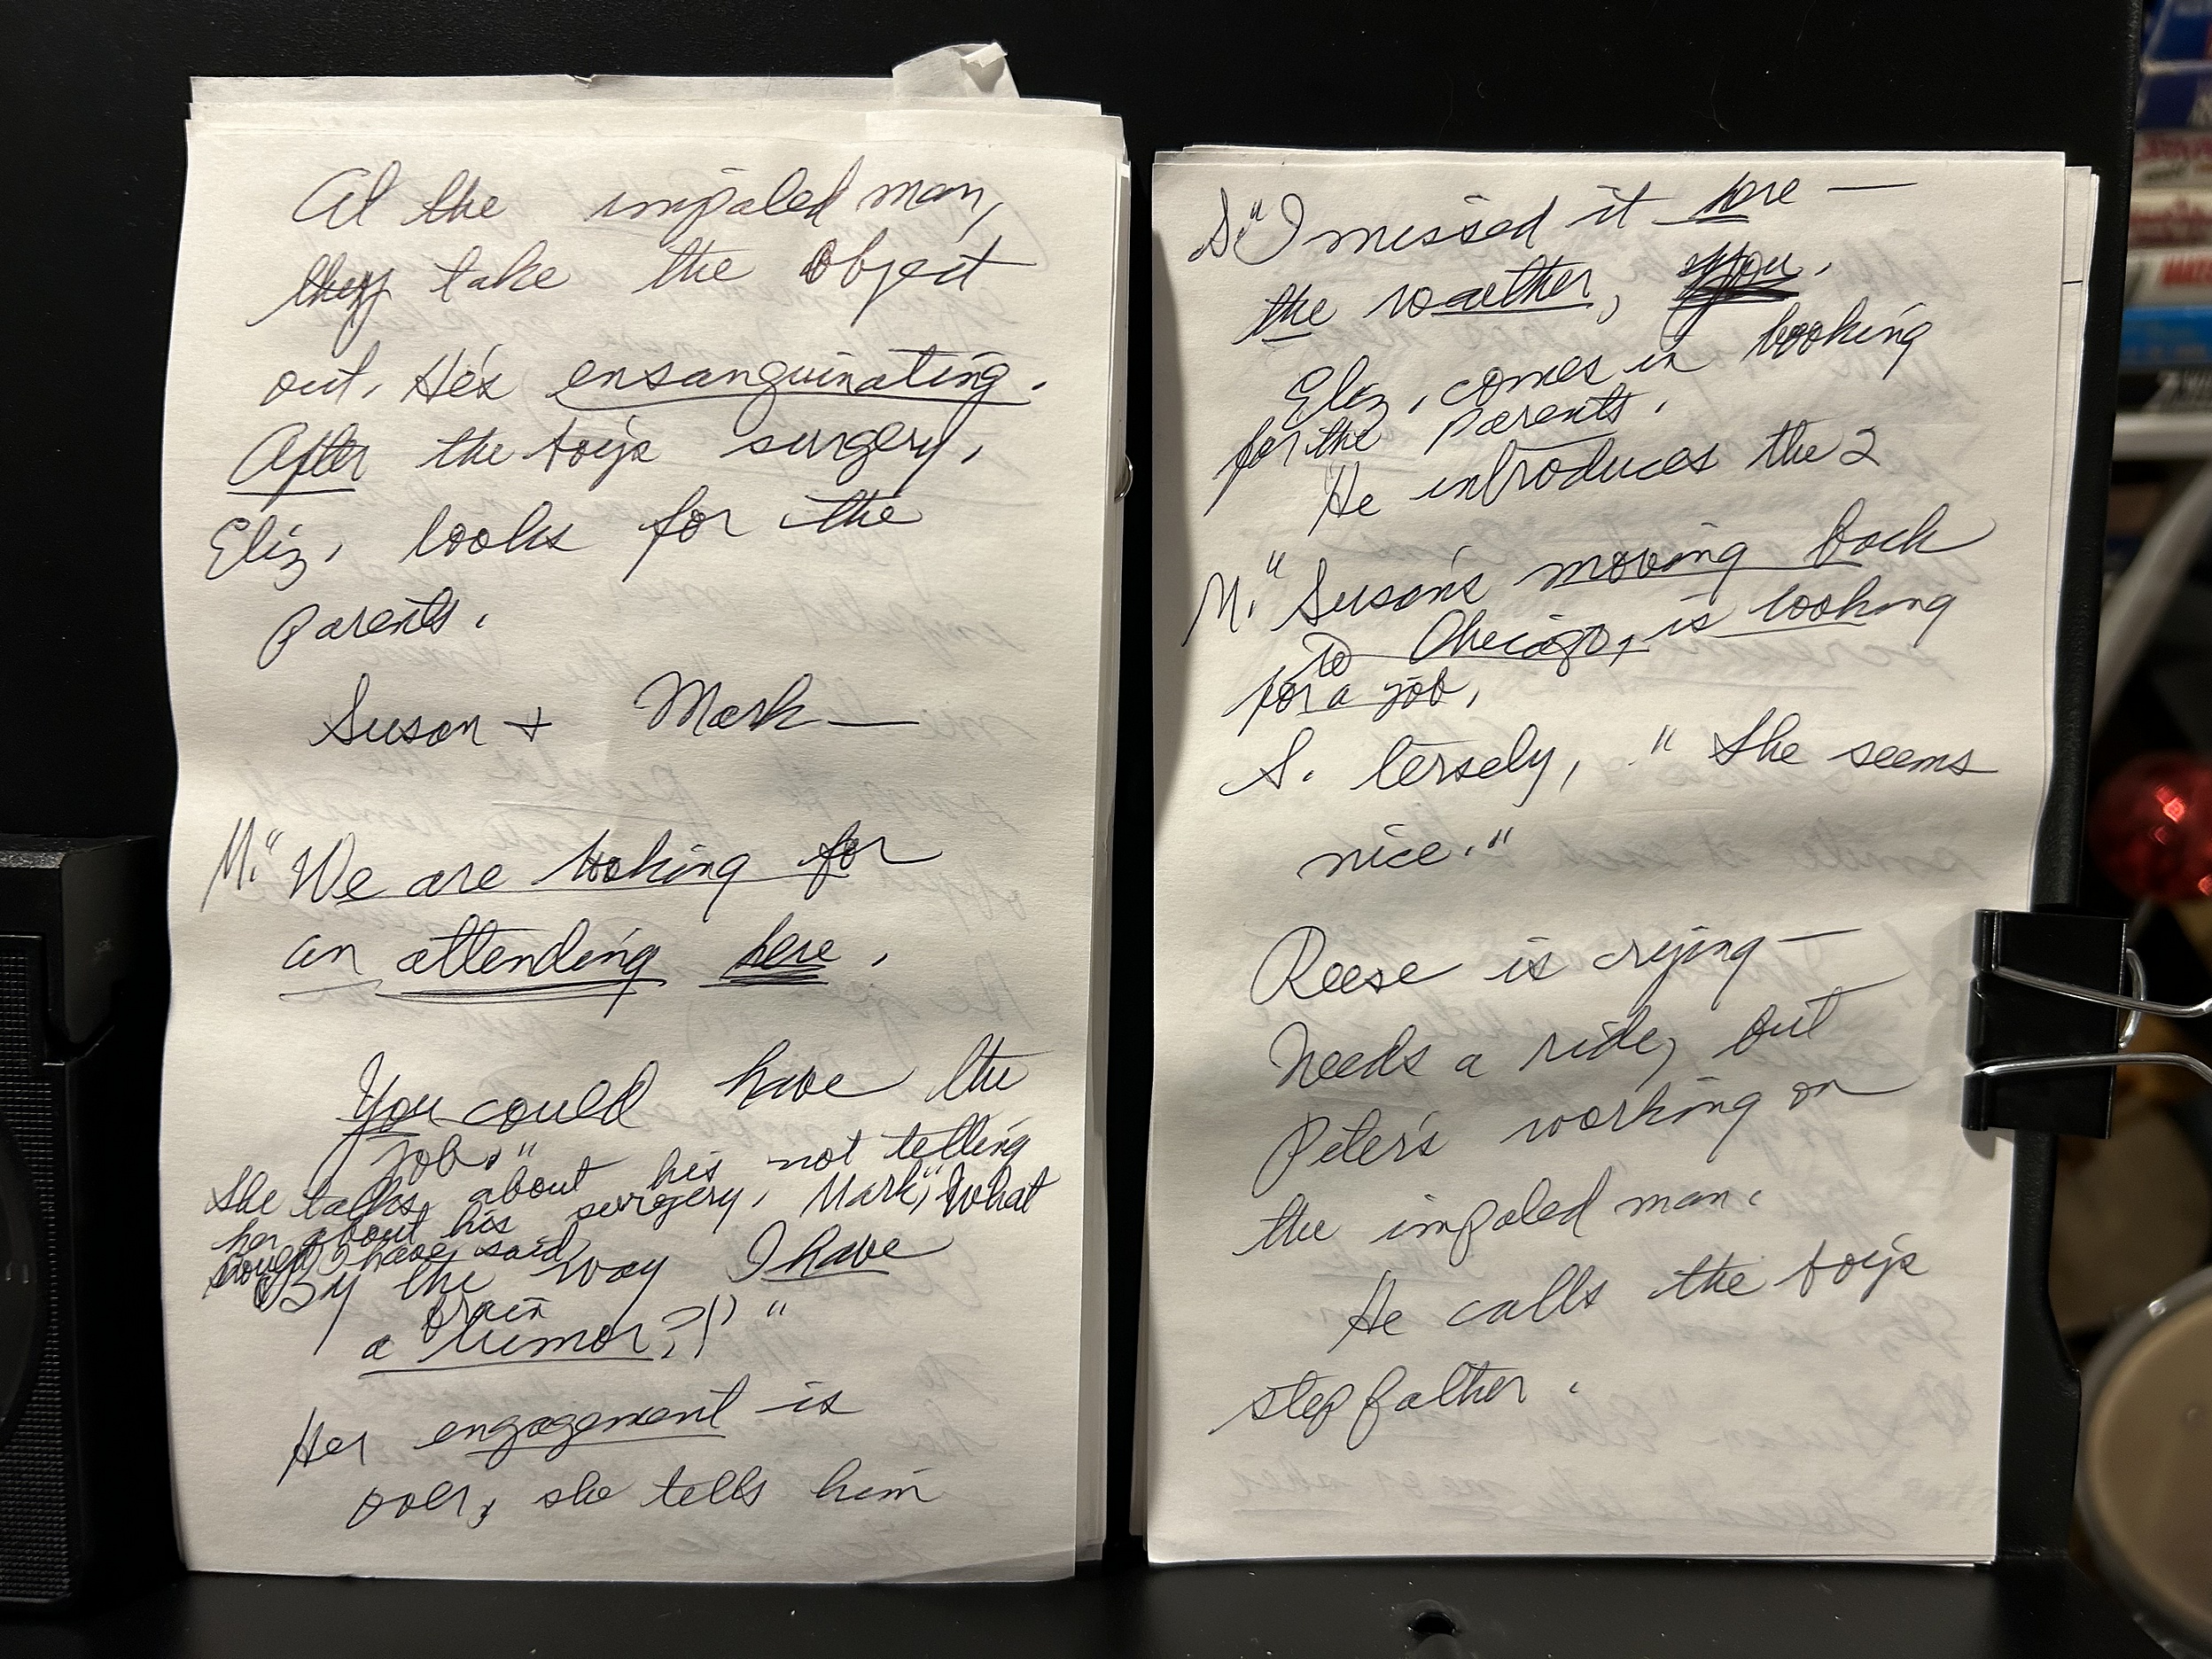 At the impaled man,
they take the object
out. He's ensanguinating.
After the boy's surgery,
Eliz. looks for the
parents.
Susan + Mark —
M. "We are looking for
an attending here.
You could have the
job."
She talks about his not telling
her about his surgery. Mark, "What
should I have said
By the way I have
a brain tumor?!) "
Her engagement is
over, she tells him
S. "I missed it here —
the weather, you.
Eliz. comes in looking
for the parents.
He introduces the 2
M. "Susan's moving back
to Chicago, is looking
for a job.
S. tersely, "She seems
nice."
Reese is crying —
Needs a ride, but
Peter's working on
the impaled man.
He calls the boy's
stepfather.